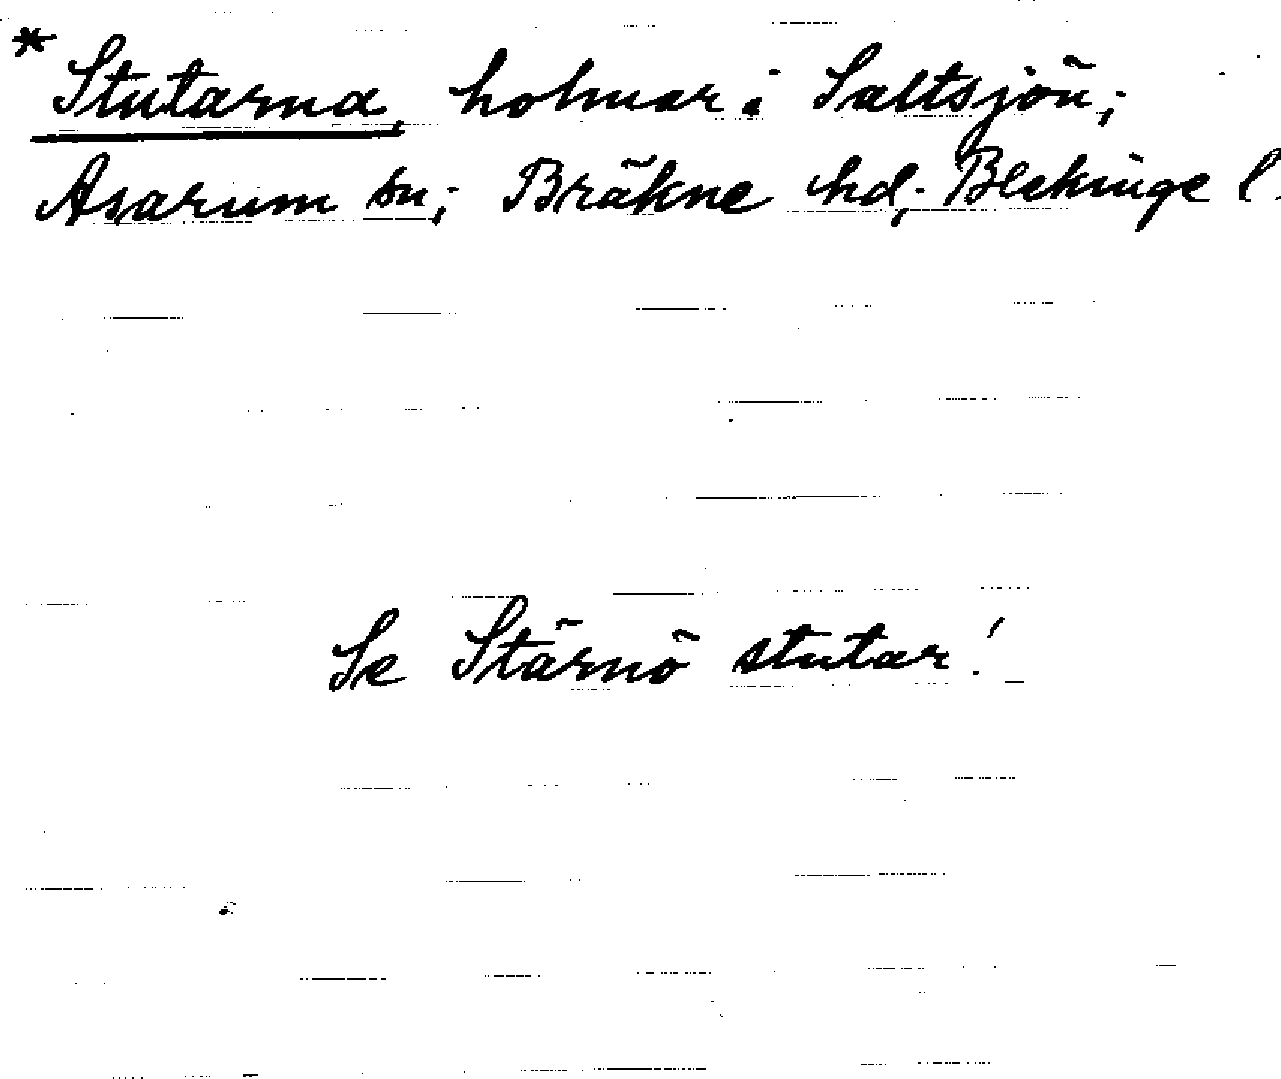 * Stutarna, holmar i Saltsjön;
Asarum sn; Bräkne hd; Blekinge l.
Se Stärnö stutar!